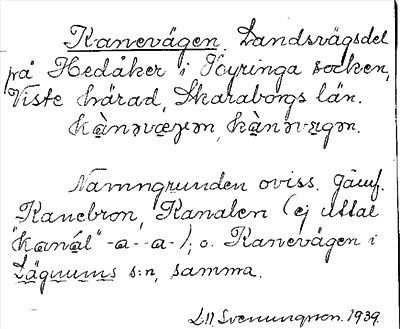 Kanevägen. Landsvägsdel
på Hedåker i Kyringa socken,
Viste härad, Skaraborgs län.
kànəvægən, kànəvægən.
Namngrunden oviss. Jämf.
Kanebron, Kanalen (ej uttal
"kanál" -a--a-), o. Kanevägen i
Längnums s:n, samma.
1939.